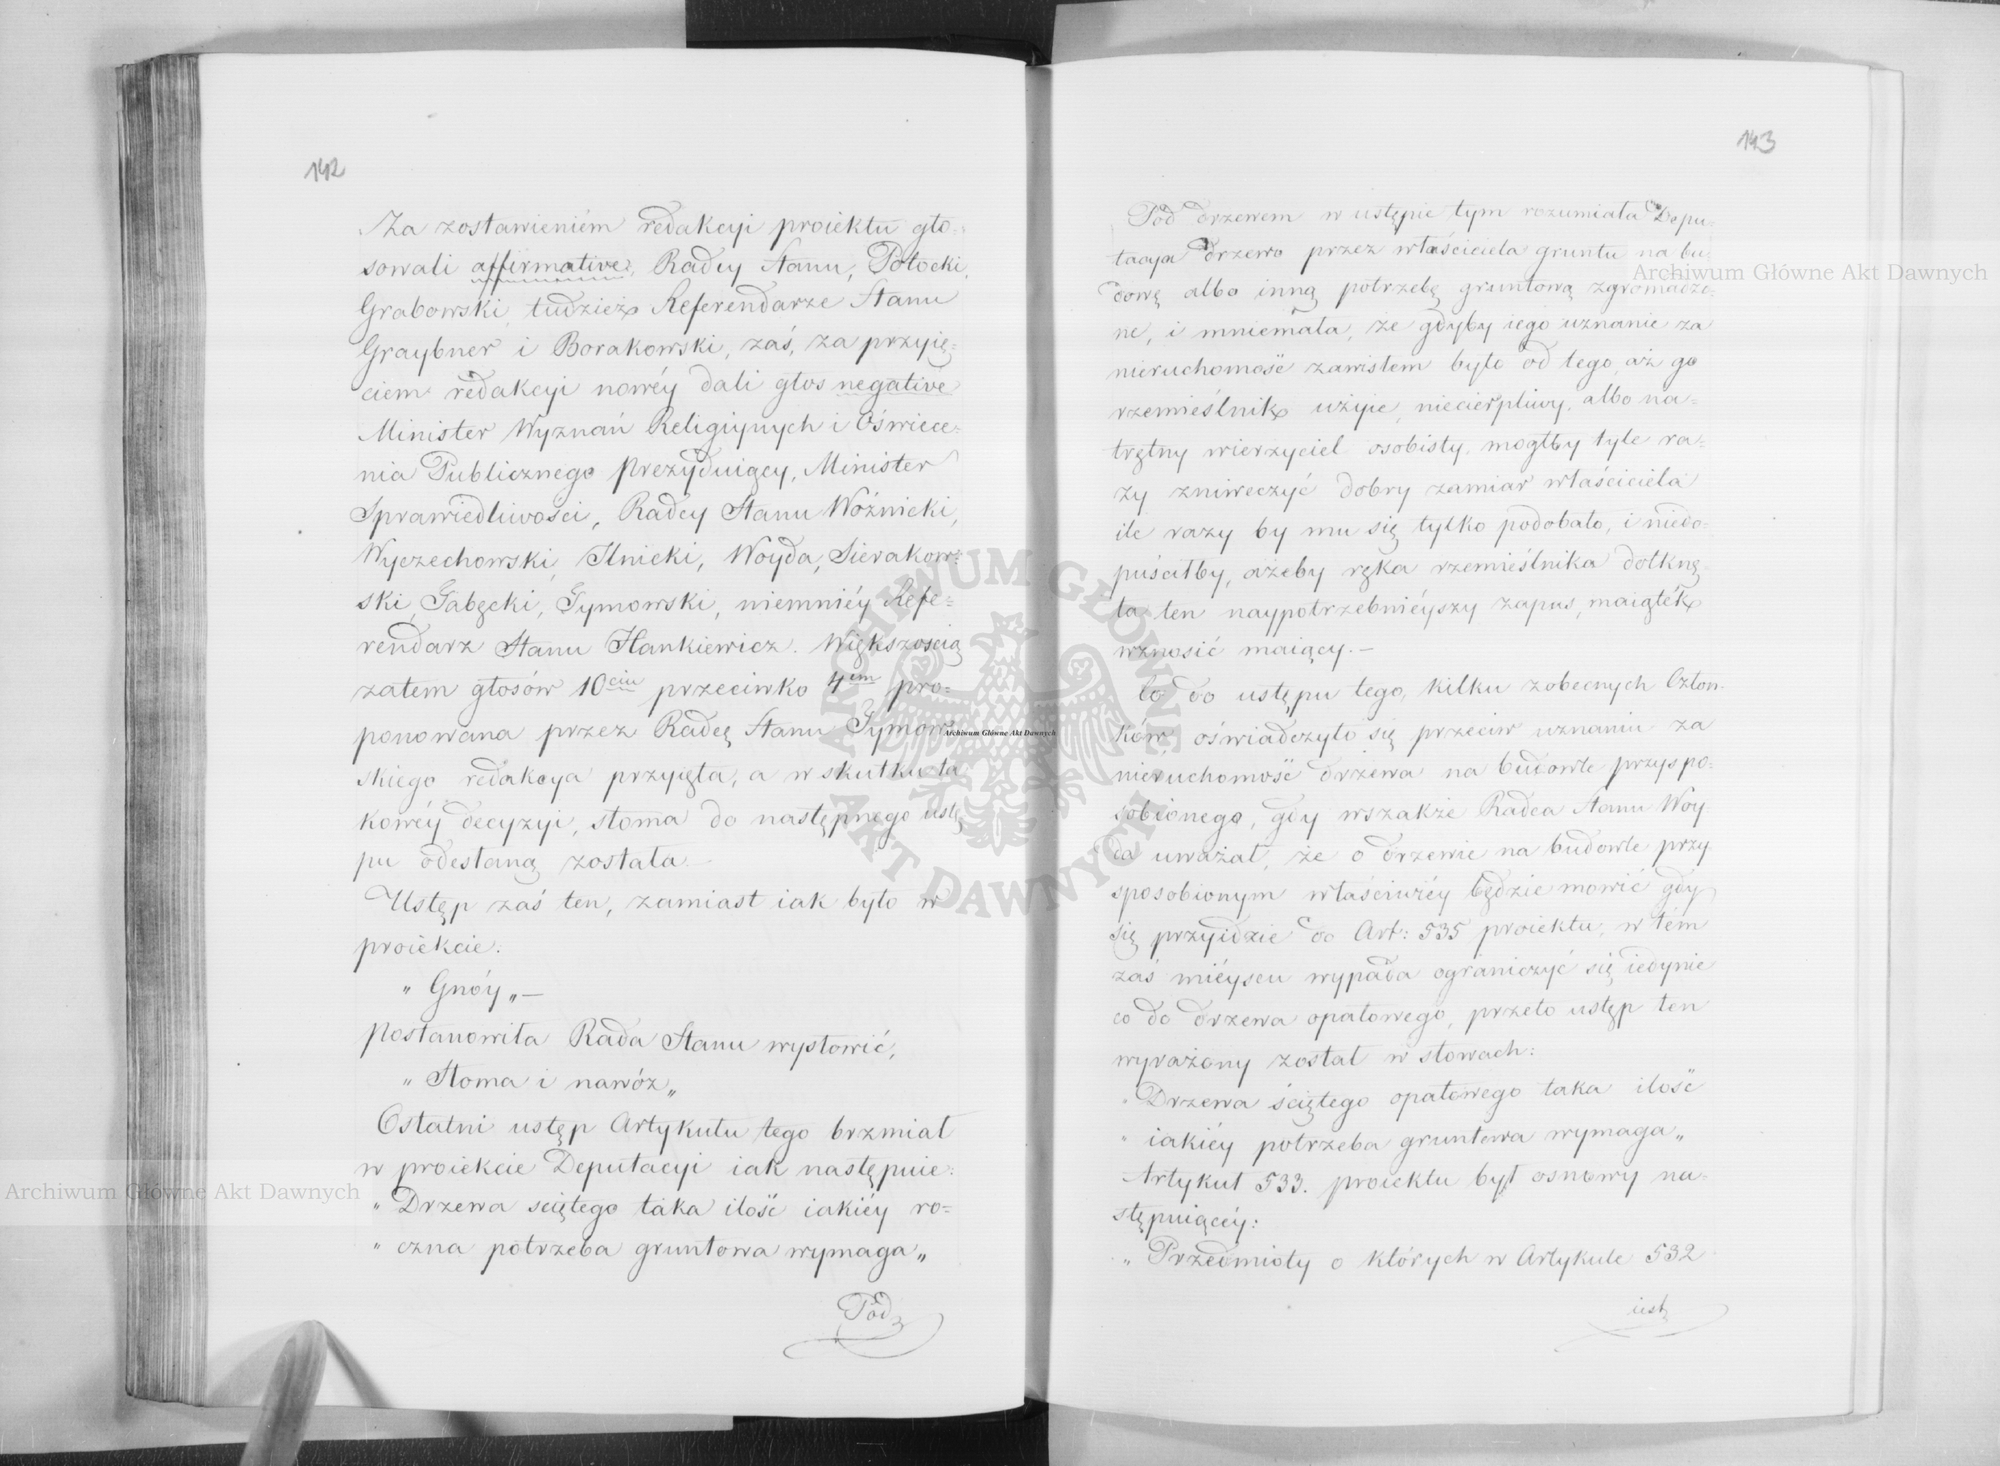 142
Za zostawieniém redakcyi proiektu gło-
sowali affirmative, Radcy Stanu, Potocki,
Grabowski, tudzież Referendarze Stanu
Graybner i Borakowski, zaś, za przyię-
ciem redakcyi nowéy dali głos negative
Minister Wyznań Religiynych i Oświece-
nia Publicznego Prezyduiący, Minister
Sprawiedliwości, Radcy Stanu Woźnicki,
Wyczechowski, Ilnicki, Woyda, Sierakow-
ski, Gabęcki, Tymowski, niemniéy Refe-
rendarz Stanu Hankiewicz. Większością
zatem głosów 10ciu przeciwko 4em pro-
ponowana przez Radcę Stanu Tymow-
skiego redakcya przyięta, a w skutku ta
kowéy decyzyi, słoma do następnego ustę
pu odesłaną została.
Ustęp zaś ten, zamiast iak było w
proiekcie:
„ Gnóy „ —
postanowiła Rada Stanu wysłowić,
„ Słoma i nawóz „
Ostatni ustęp Artykułu tego brzmiał
w proiekcie Deputacyi iak następuie:
„ Drzewa sciętego taka ilość iakiéy ro-
„ czna potrzeba gruntowa wymaga „
Pod
143
Pod drzewem w ustępie tym rozumiała Depu-
tacya drzewo przez właściciela gruntu na bu
dowę albo inną potrzebę gruntową zgromadzo-
ne, i mniemała, że gdyby iego uznanie za
nieruchomość zawisłem było od tego, aż go
rzemieślnik użyie, niecierpliwy, albo na-
trętny wierzyciel osobisty, mogłby tyle ra-
zy zniweczyć dobry zamiar właściciela
ile razy by mu się tylko podobało, i niedo-
puściłby, ażeby ręka rzemieślnika dotknę-
ła ten naypotrzebniéyszy zapas, maiątek
wznosić maiący. —
Co do ustępu tego, kilku z obecnych Człon-
ków, oświadczyło się przeciw uznaniu za
nieruchomość drzewa na budowle przyspo-
sobionego, gdy wszakże Radca Stanu Woy
da uważał, że o drzewie na budowle przy
sposobionym właściwiéy będzie mowić gdy
się przyidzie do Art: 535 proiektu, w tém
zaś mieyscu wypada ograniczyć się iedynie
co do drzewa opałowego, przeto ustęp ten
wyrażony został w słowach:
„ Drzewa ściętego opałowego taka ilość
„ iakiéy potrzeba gruntowa wymaga „
Artykuł 533. proiektu był osnowy na-
stępuiącéy:
„ Przedmioty o których w Artykule 532
iest
Archiwum Główne Akt Dawnych
Archiwum Główne Akt Dawnych
Archiwum Główne Akt Dawnych
ARCHIWUM GŁÓWNE AKT DAWNYCH